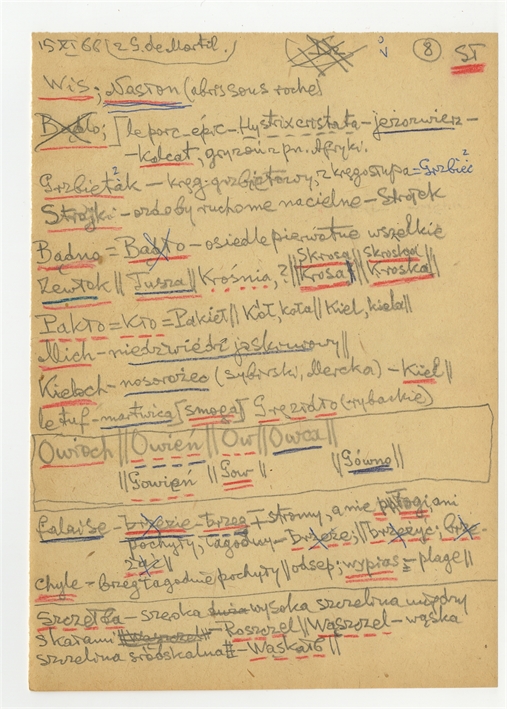 15 XI 66 (z G. de Mortil.) 8 ST
WiS; Nason (abris sous roche)
Bądlo; le porc-épic - Hystrix cristata - jeżozwierz -
- kolcat, gryzoń z pn. Afryki.
Grzbietak - kręg. grzbietowy, z kręgosłupa = Grzbieć
Strojki - ozdoby ruchome nacielne - Strojek
Bądno = Bagto - osiedle pierwotne wszelkie
Zewłok || Tusza || Krośnia, ? || Skrosa Krosa || Skroska Kroska ||
Pakto = Kto = Pakiet || Kół, koła || Kiel, kiela ||
Mich - niedźwiedź jaskiniowy ||
Kieloch - nosorożec (sybirski, Mercka) - Kiel ||
le tuf - martwica [smoga] Grezidło (rybackie)
Owioch || Owien || Ow || Owca ||
|| Gowień || Gow || Gówno ||
Falaise - brzezie - brzeg + stromy, a nie połogi ani
pochyły, łagodny - brzeże; || brzeżyc.
chyle - brzeg łagodnie pochyły || odsep; wypias = plage ||
Szczelba - szeroka duża wysoka szczelina między
skałami || Waszczel || - Roszczel || Wąszczel - wąska
szczelina śródskalna - Wąskałb ||